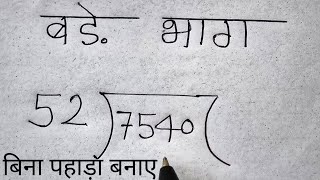 बडे. भाग
52)7540(
बिना पहाड़ॉ बनाए